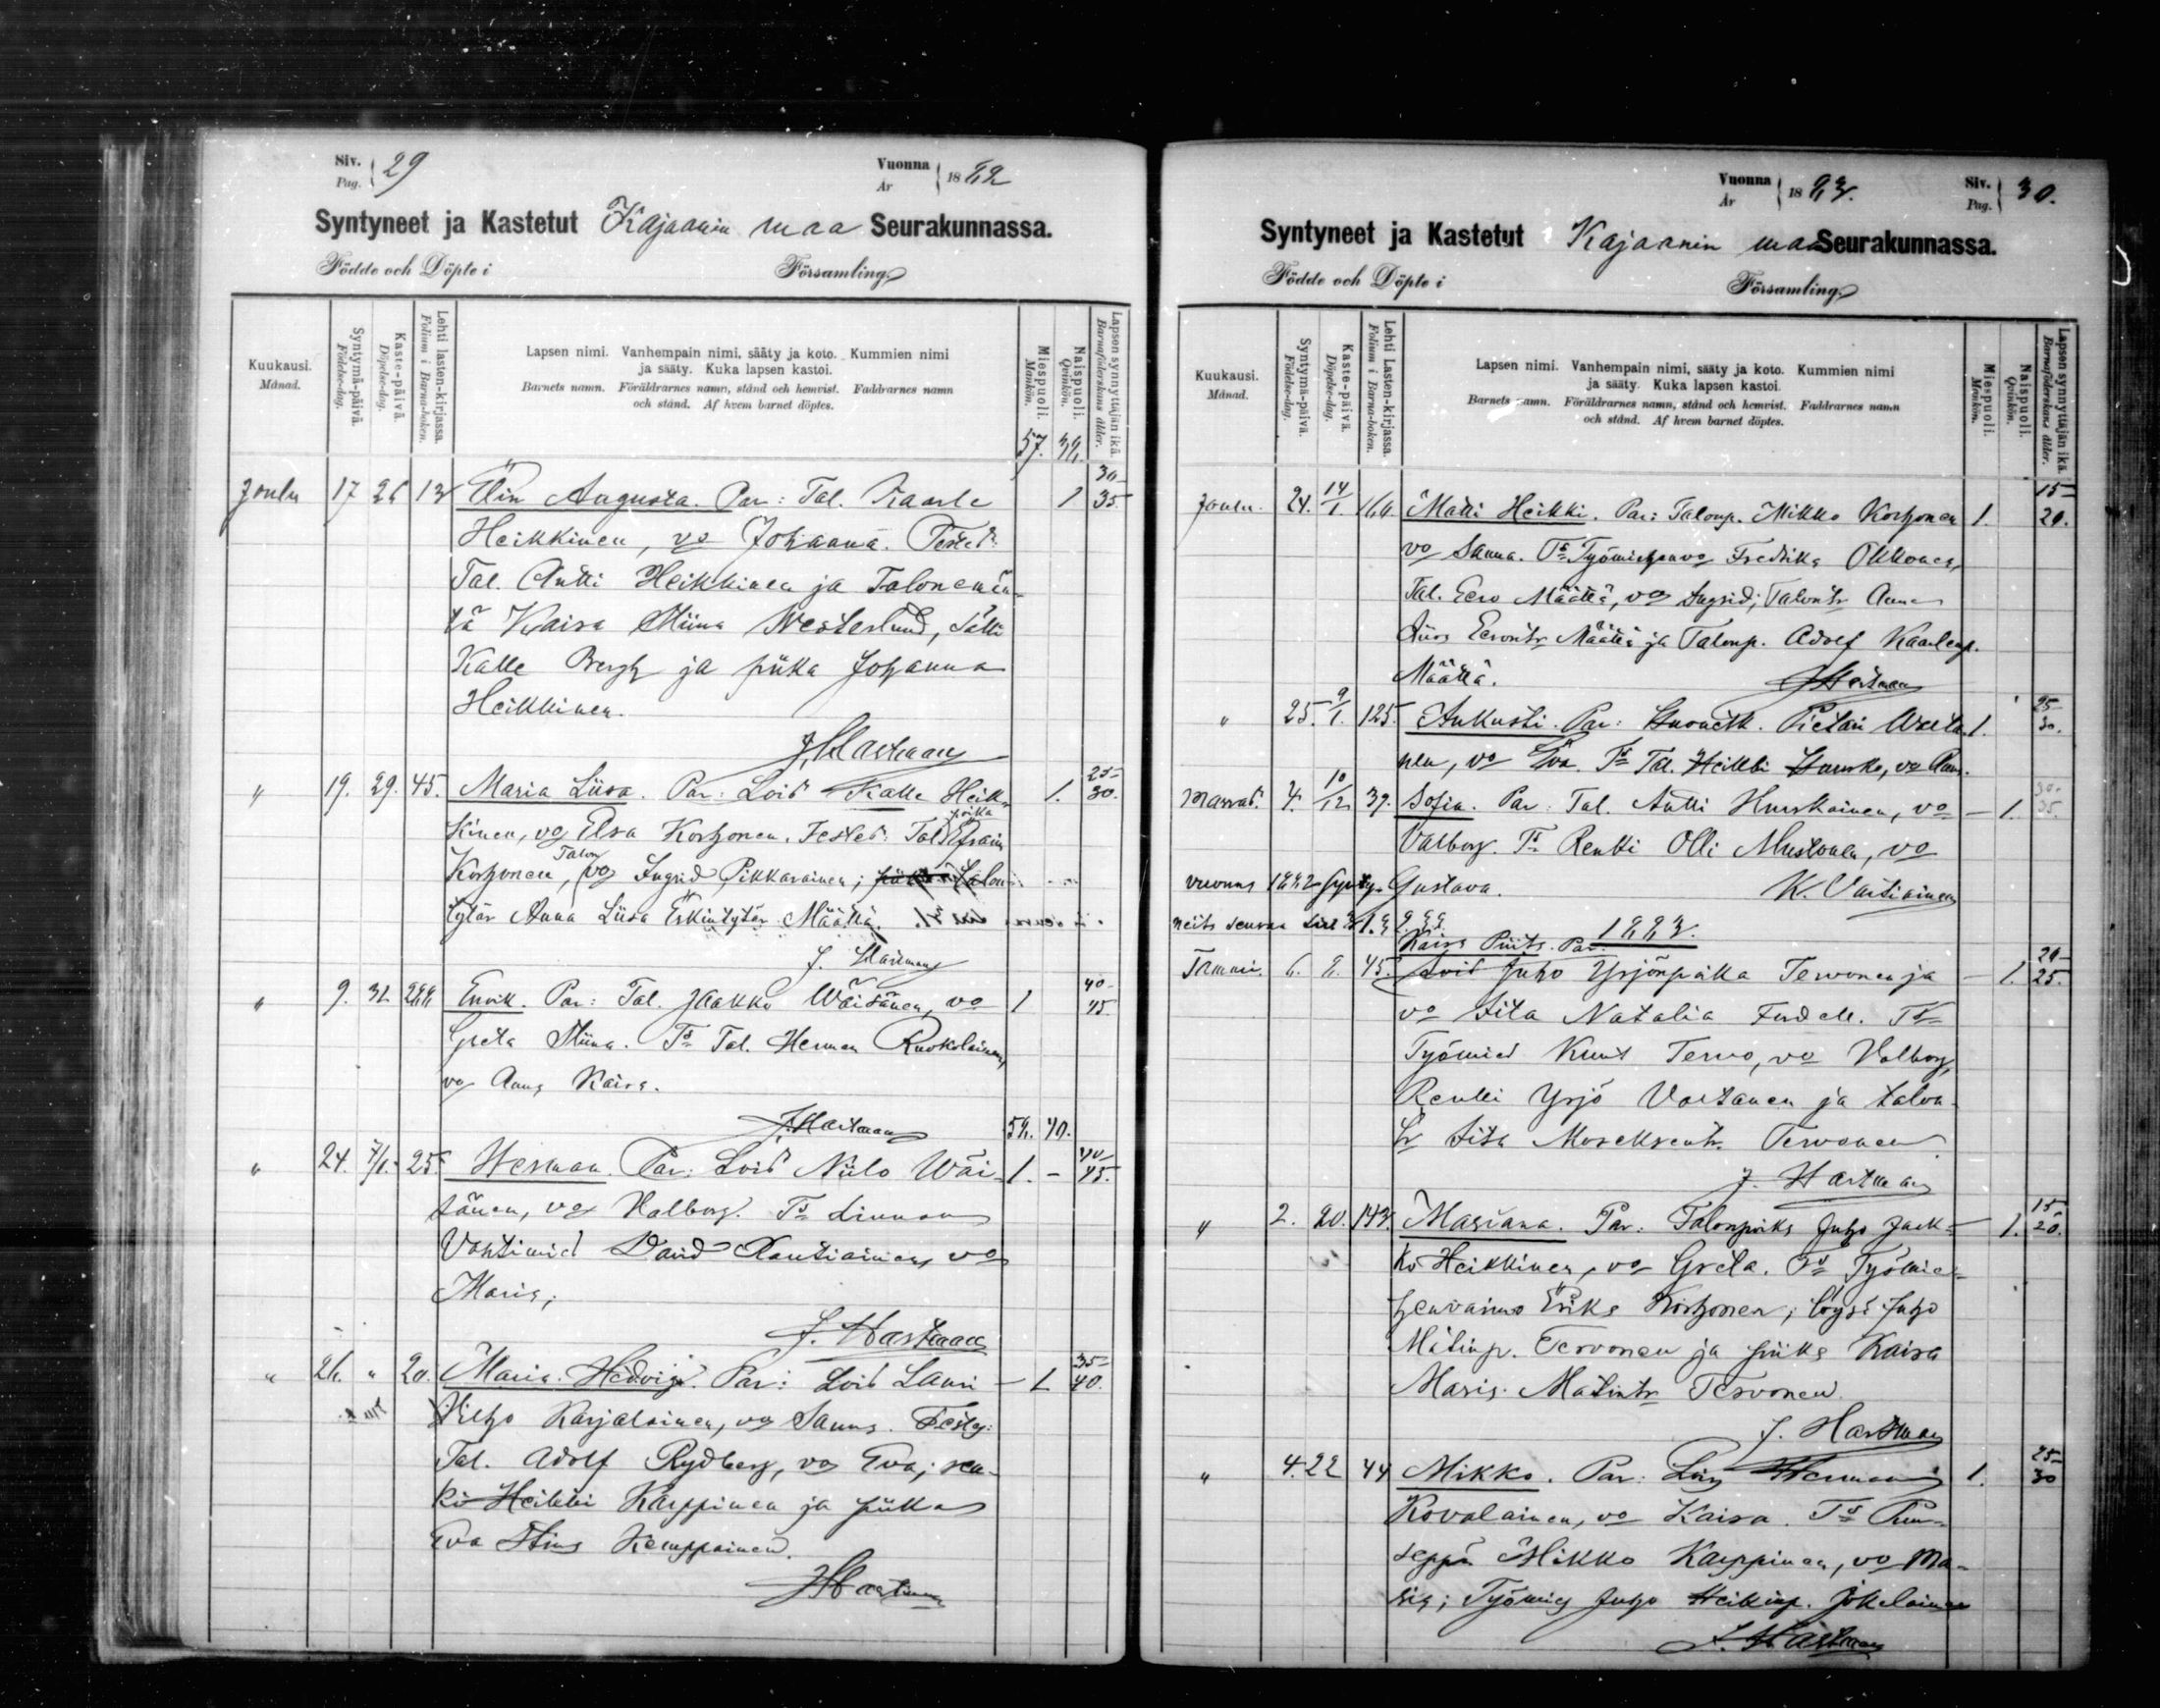 Siv. 29
Pag.
Vuonna 1882
År
Syntyneet ja Kastetut Kajaanin maa Seurakunnassa.
Födde och Döpte i Församling
Kuukausi.
Månad.
Syntymä-päivä.
Födelse-dag.
Kaste-päivä.
Döpelse-dag.
Lehti lasten-kirjassa.
Folium i Barna-boken.
Lapsen nimi. Vanhempain nimi, sääty ja koto. Kummien nimi
ja sääty. Kuka lapsen kastoi.
Barnets namn. Föräldrarnes namn, stånd och hemvist. Faddrarnes namn
och stånd. Af hvem barnet döptes.
Miespuoli.
Mankön.
Naispuoli.
Qvinkön.
Lapsen synnyttäjän ikä.
Barnaföderskans ålder.
57. 38.
Joulu 17 26 13 Elin Augusta. Par: Tal. Kaarle 1 30-35.
Heikkinen, vo Johanna. Test:
Tal. Antti Heikkinen ja Talonemän-
tä Kaisa Miina Westerlund, Sälli
Kalle Bergh ja piika Johanna
Heikkinen.
J. Hartman
" 19. 29. 45. Maria Liisa. Par: Lois Kalle Heik- 1. 25-30.
kinen, vo Elsa Korhonen. Testes: Tal. poika Efraim
Korhonen, Talon vo Ingrid Pikkarainen;
tytär Anna Liisa Erkintytär Määttä.
J. Hartman
" 9. 31. 288 Enrik. Par: Tal. Jaakko Wäisänen, vo 1 40-45
Greta Stiina. Ts Tal. Herman Ruokolainen,
vo Anna Kaisa.
J. Hartman 58. 40.
" 24. 7/1. 25. Herman. Par: Lois Niilo Wäi- 1. - 40-45.
sänen, vo Valborg. Ts Linnan
Vahtimies David Rautiainen, vo
Maria;
J. Hartman
" 26. " 20. Maria Hedvig. Par: Lois Lauri - 1 35-40.
Vilho Karjalainen, vo Sanna. Testes:
Tal. Adolf Rydberg, vo Eva; ren-
ki Heikki Karppinen ja piika
Eva Stina Kemppainen.
J Hartman
Vuonna 1883.
År
Siv. 30.
Pag.
Syntyneet ja Kastetut Kajaanin maa Seurakunnassa.
Födde och Döpte i Församling
Kuukausi.
Månad.
Syntymä-päivä.
Födelse-dag.
Kaste-päivä.
Döpelse-dag.
Lehti Lasten-kirjassa.
Folium i Barna-boken.
Lapsen nimi. Vanhempain nimi, sääty ja koto. Kummien nimi
ja sääty. Kuka lapsen kastoi.
Barnets namn. Föräldrarnes namn, stånd och hemvist. Faddrarnes namn
och stånd. Af hvem barnet döptes.
Miespuoli.
Mankön.
Naispuoli.
Qvinkön.
Lapsen synnyttäjän ikä.
Barnaföderskans ålder.
Joulu. 24. 14/1 Matti Heikki. Par: Talonp. Mikko Korhonen 1. 15-20.
vo Sanna. Ts Työmiehen vo Fredrika Okkonen,
Tal. Eero Määttä, vo Ingrid; Talontr Anna
Eerontr Määttä ja Talonp. Adolf Kaarlenp.
Määttä. J Hartman
" 25. 9/1. 125. Aukusti. Par: Pietari 1. 25-30.
nen, vo Eva. Ts Tal. Heikki Hursko, vo
Marras. 4. 10/12 39. Sofia. Par: Tal. Antti Hurskainen, vo - 1. 30-35.
Valborg. Ts Rentti Olli Mustonen, vo
Gustava. K. Vartiainen
vuonna 1882
1883.
Kaisa Par.
Tammi. 6. 8. 45. Lois Juho Yrjönpoika Tervonen ja - 1. 20-25.
vo Lisa Natalia. Ts
Työmies Knut Tervo, vo Valborg,
Rentti Yrjö ja talon-
tr Lisa Tervonen
J. Hartman
" 2. 20. 143. Mariana. Par: Talonpoika Juho Jaak- - 1. 15-20.
ko Heikkinen, vo Greta. Ts Työmie-
henvaimo Erika Korhonen; löysi Juho
Matinp. Tervonen ja piika Kaisa
Maria Matintr Tervonen.
J. Hartman
" 4. 22 44 Mikko. Par: Lois Herman 1. 25-30
Kovalainen, vo Kaisa. Ts Puu-
seppä Mikko Karppinen, vo Ma-
ria; Työmies Juho Heikinp. Jokelainen
J. Hartman